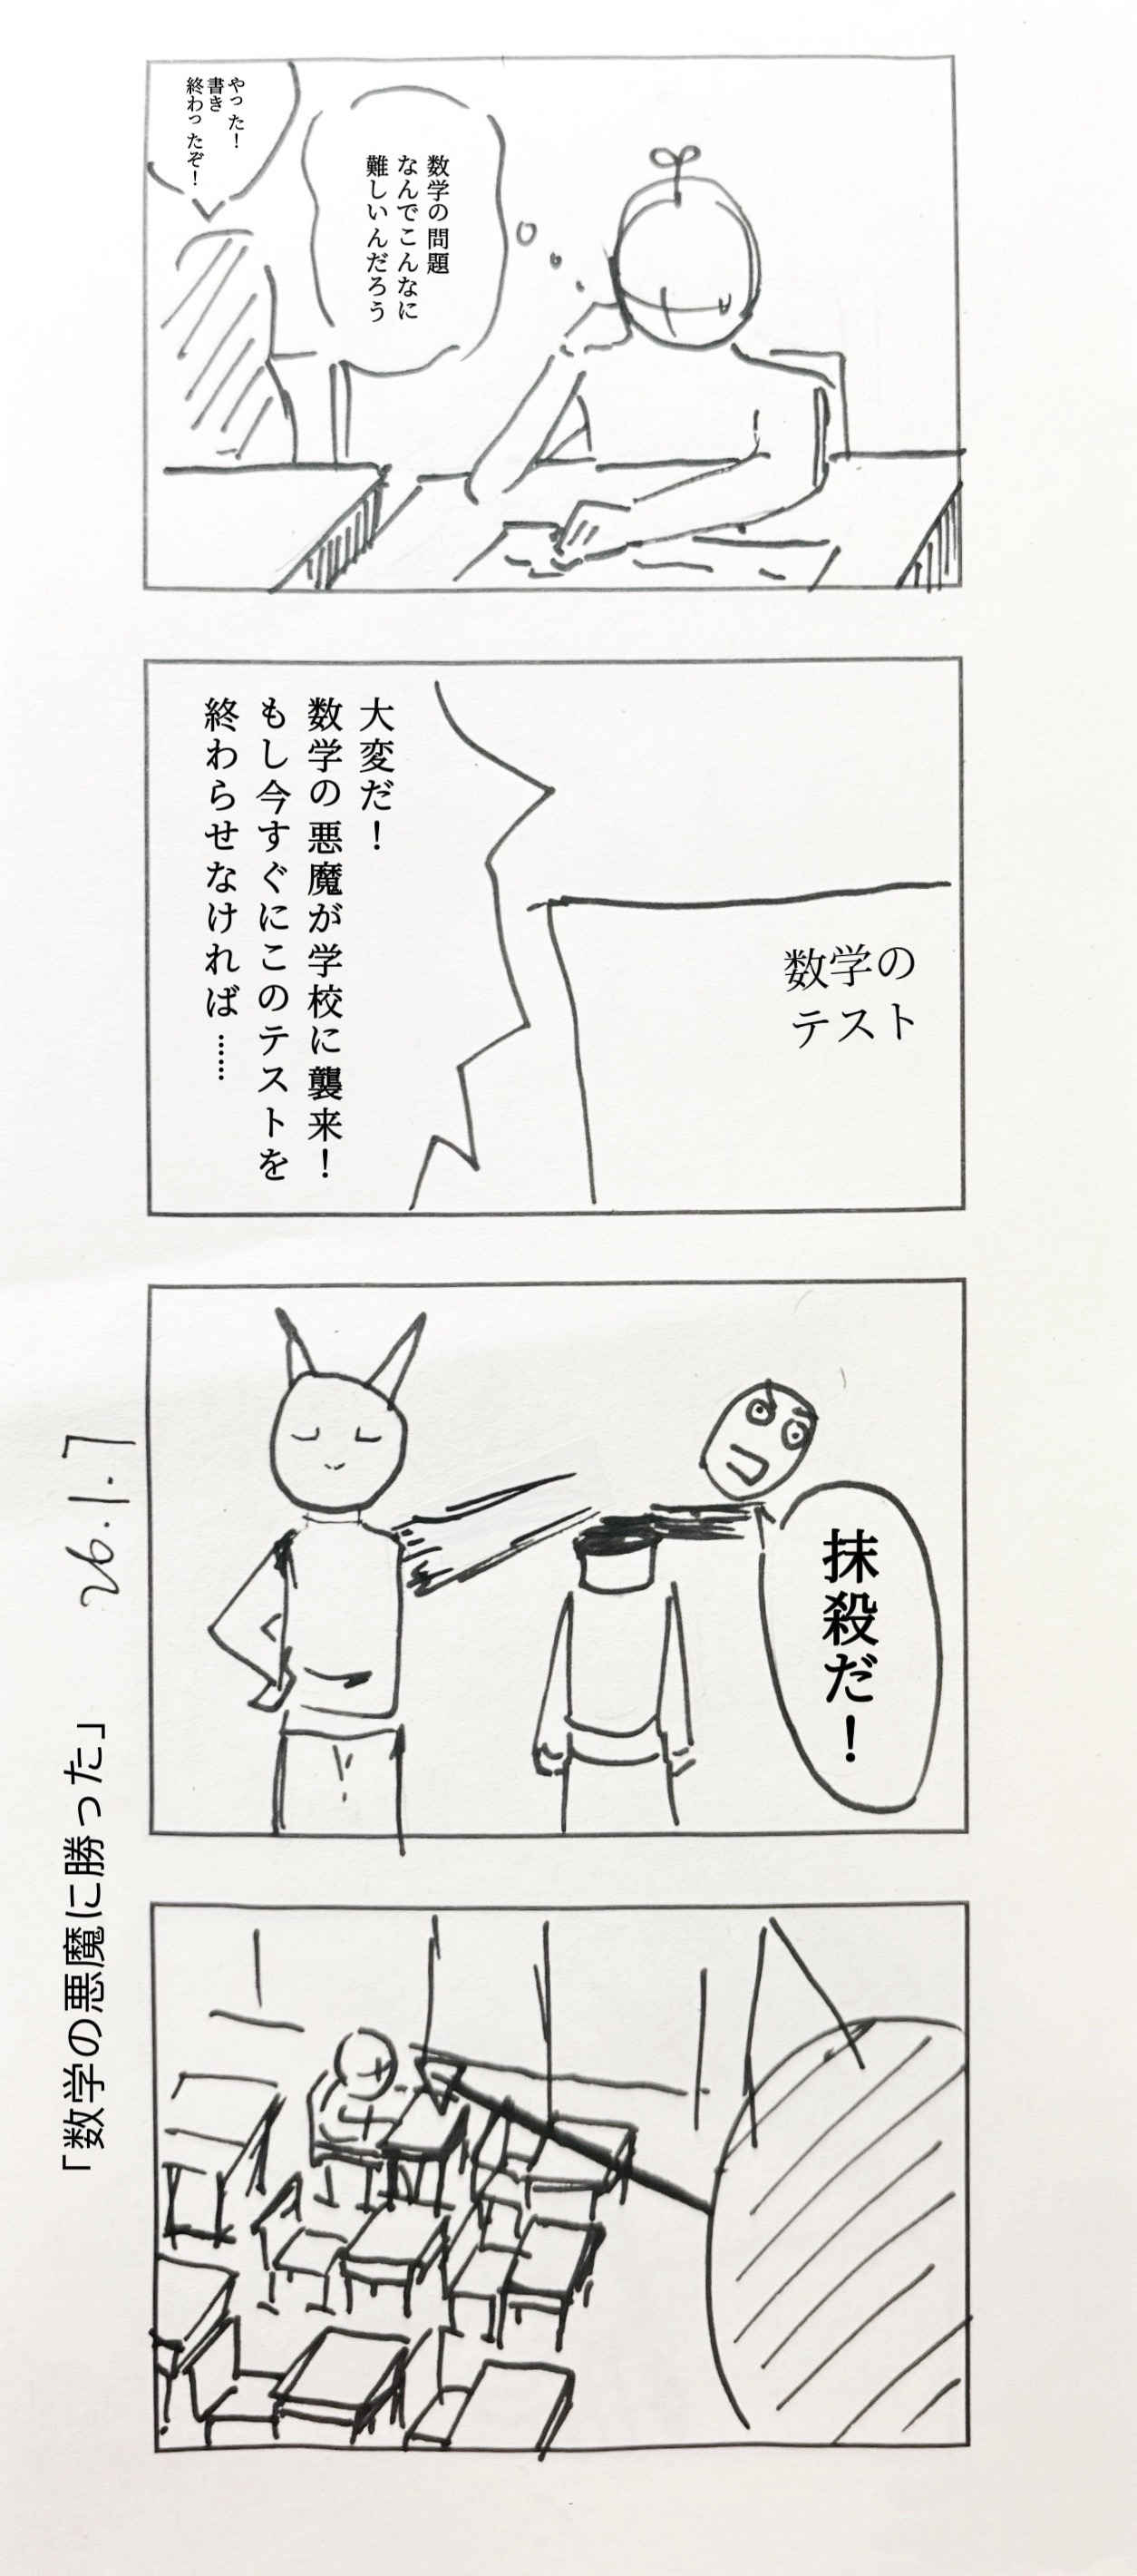 数学の問題
なんでこんなに
難しいんだろう
やった！
書き
終わったぞ！
数学の
テスト
大変だ！
数学の悪魔が学校に襲来！
もし今すぐにこのテストを
終わらせなければ……
抹殺だ！
「数学の悪魔に勝った」
26.1.7